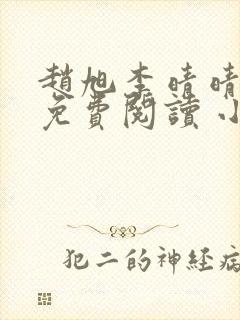 趙旭李晴晴
免費閱讀小
犯二的神経病